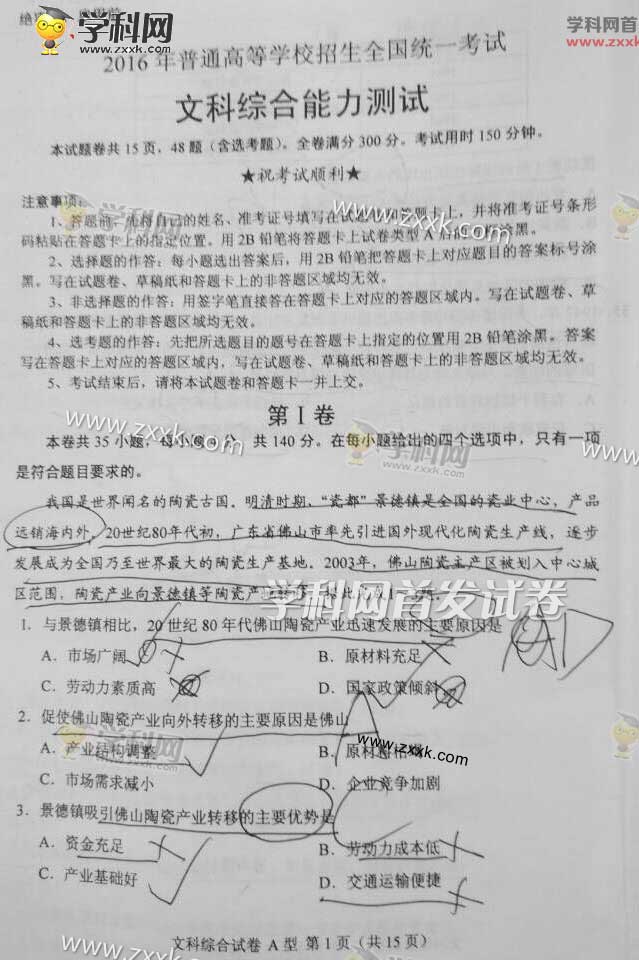 学科网
www.zxxk.com
学科网
www.zxxk.
2016年普通高等学校招生全国统一考试
文科综合能力测试
本试题卷共15页,48题(含选考题)。全卷满分300分。考试用时150分钟。
★祝考试顺利★
注意事项:
1、答题前,先将自己的姓名、准考证号填写在试题卷和答题卡上,并将准考证号条形
码粘贴在答题卡上的指定位置。用2B铅笔将答题卡上试卷类型A后的方框涂黑。
2、选择题的作答:每小题选出答案后,用2B铅笔把答题卡上对应题目的答案标号涂
黑。写在试题卷、草稿纸和答题卡上的非答题区域均无效。
3、非选择题的作答:用签字笔直接答在答题卡上对应的答题区域内。写在试题卷、草
稿纸和答题卡上的非答题区域均无效。
4、选考题的作答:先把所选题目的题号在答题卡上指定的位置用2B铅笔涂黑。答案
写在答题卡上对应的答题区域内,写在试题卷、草稿纸和答题卡上的非答题区域均无效。
5、考试结束后,请将本试题卷和答题卡一并上交。
第Ⅰ卷
本卷共35小题,每小题 分,共140分。在每小题给出的四个选项中,只有一项
是符合题目要求的。
我国是世界闻名的陶瓷古国。明清时期,“瓷都”景德镇是全国的瓷业中心,产品
远销海内外。20世纪80年代初,广东省佛山市率先引进国外现代化陶瓷生产线,逐步
发展成为全国乃至世界最大的陶瓷生产基地。2003年,佛山陶瓷主产区被划入中心城
区范围,陶瓷产业向景德镇等陶瓷产业转移。据此完成1~3题。
学科网首发试卷
1.与景德镇相比,20世纪80年代佛山陶瓷产业迅速发展的主要原因是
A.市场广阔 B.原材料充足
C.劳动力素质高 D.国家政策倾斜
2.促使佛山陶瓷产业向外转移的主要原因是佛山
A.产业结构调整 B.原材料枯
C.市场需求减小 D.企业竞争加剧
3.景德镇吸引佛山陶瓷产业转移的主要优势是
A.资金充足 B.劳动力成本低
C.产业基础好 D.交通运输便捷
文科综合试卷 A型 第1页(共15页)
www.zxxk.com